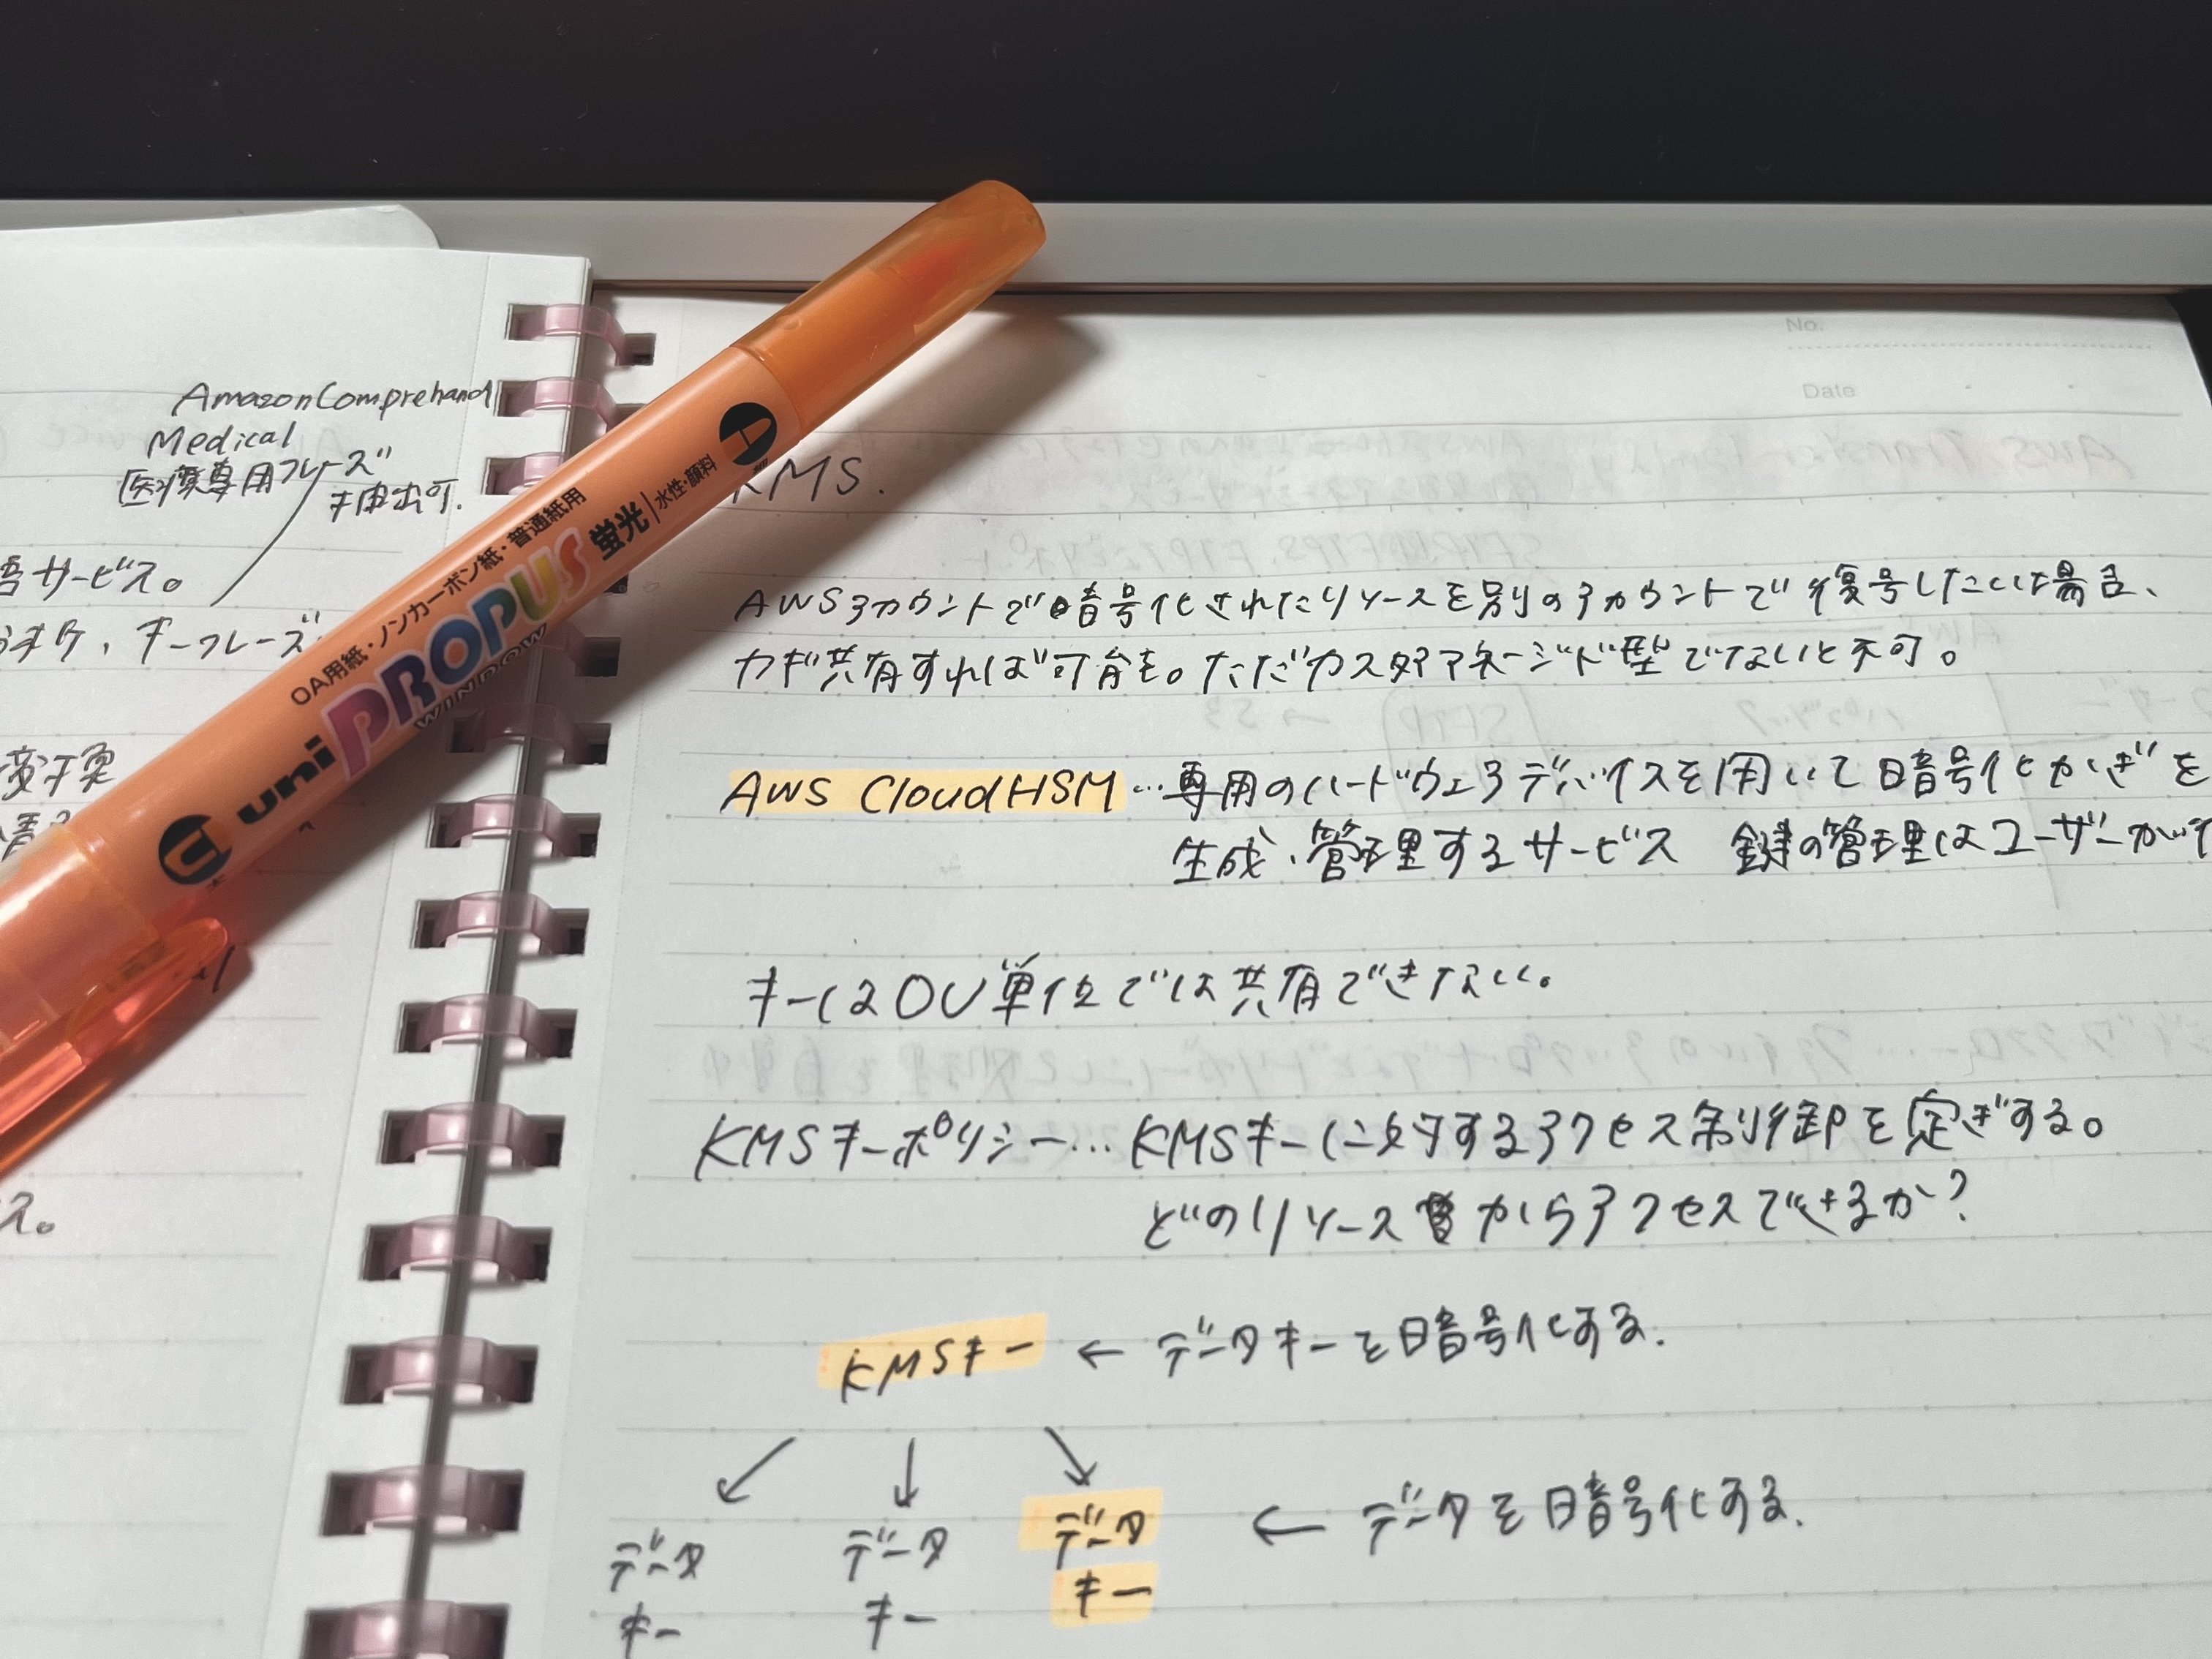 AmazonComprehend
Medical
医療専用フレーズ
抽出可.
語サービス。
キーフレーズ
変換
ス。
uni PROPUS 蛍光 水性・顔料
WINDOW
OA用紙・ノンカーボン紙・普通紙用
No.
Date
KMS.
AWSアカウントで暗号化されたリソースを別のアカウントで復号したい場合、
カギ共有すれば可能。ただカスタママネージド型でないと不可。
AWS CloudHSM…専用のハードウェアデバイスを用いて暗号化かぎを
生成、管理するサービス 鍵の管理はユーザーが
キーはOU単位では共有できない。
KMSキーポリシー… KMSキーに対するアクセス制御を定ぎする。
どのリソースからアクセスできるか?
KMSキー ← データキーを暗号化する.
↙ ↓ ↘
データ データ データ ← データを暗号化する.
キー キー キー